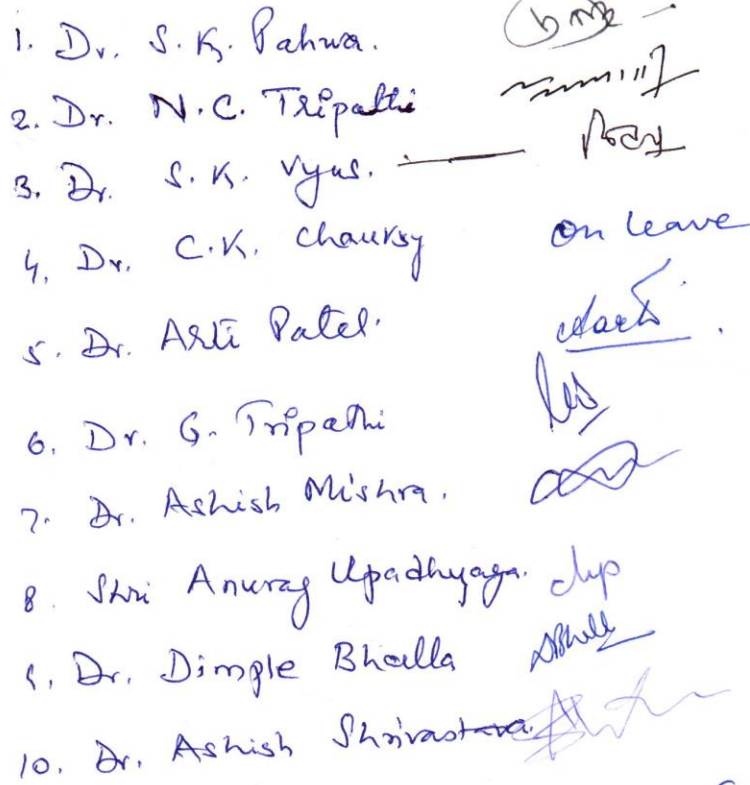 1. Dr. S.K. Pahwa.
2. Dr. N.C. Tripathi
3. Dr. S.K. Vyas.
4. Dr. C.K. Chauksy on leave
5. Dr. Arti Patel.
6. Dr. G. Tripathi
7. Dr. Ashish Mishra.
8. Shri Anurag Upadhyaya.
9. Dr. Dimple Bhalla
10. Dr. Ashish Shrivastava